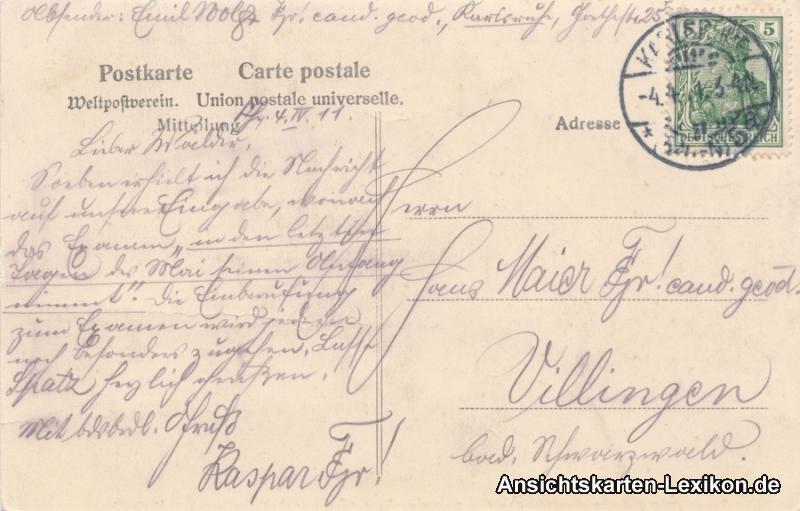 Absender: Emil Wolf Fr! cand. geod., Karlsruhe, Goethestr. 25
Postkarte Carte postale
Weltpostverein. Union postale universelle.
Mitteilung
4. IV. 11.
Adresse
5
DEUTSCHES REICH
KARLSRUHE
Lieber Walder,
Soeben erhielt ich die Nachricht
auf unsere Eingabe, wonach
das Examen „in den letzten
Tagen des Mai seinen Anfang
nimmt“. Die Einberufung
zum Examen wird jedem
noch besonders zugehen. Lasse
Spatz herzlich grüßen.
Mit bdsbrdl. Gruß
Kaspar Fr!
Herrn
Hans Maier Fr! cand. geod.
Villingen
bad. Schwarzwald.
Ansichtskarten-Lexikon.de